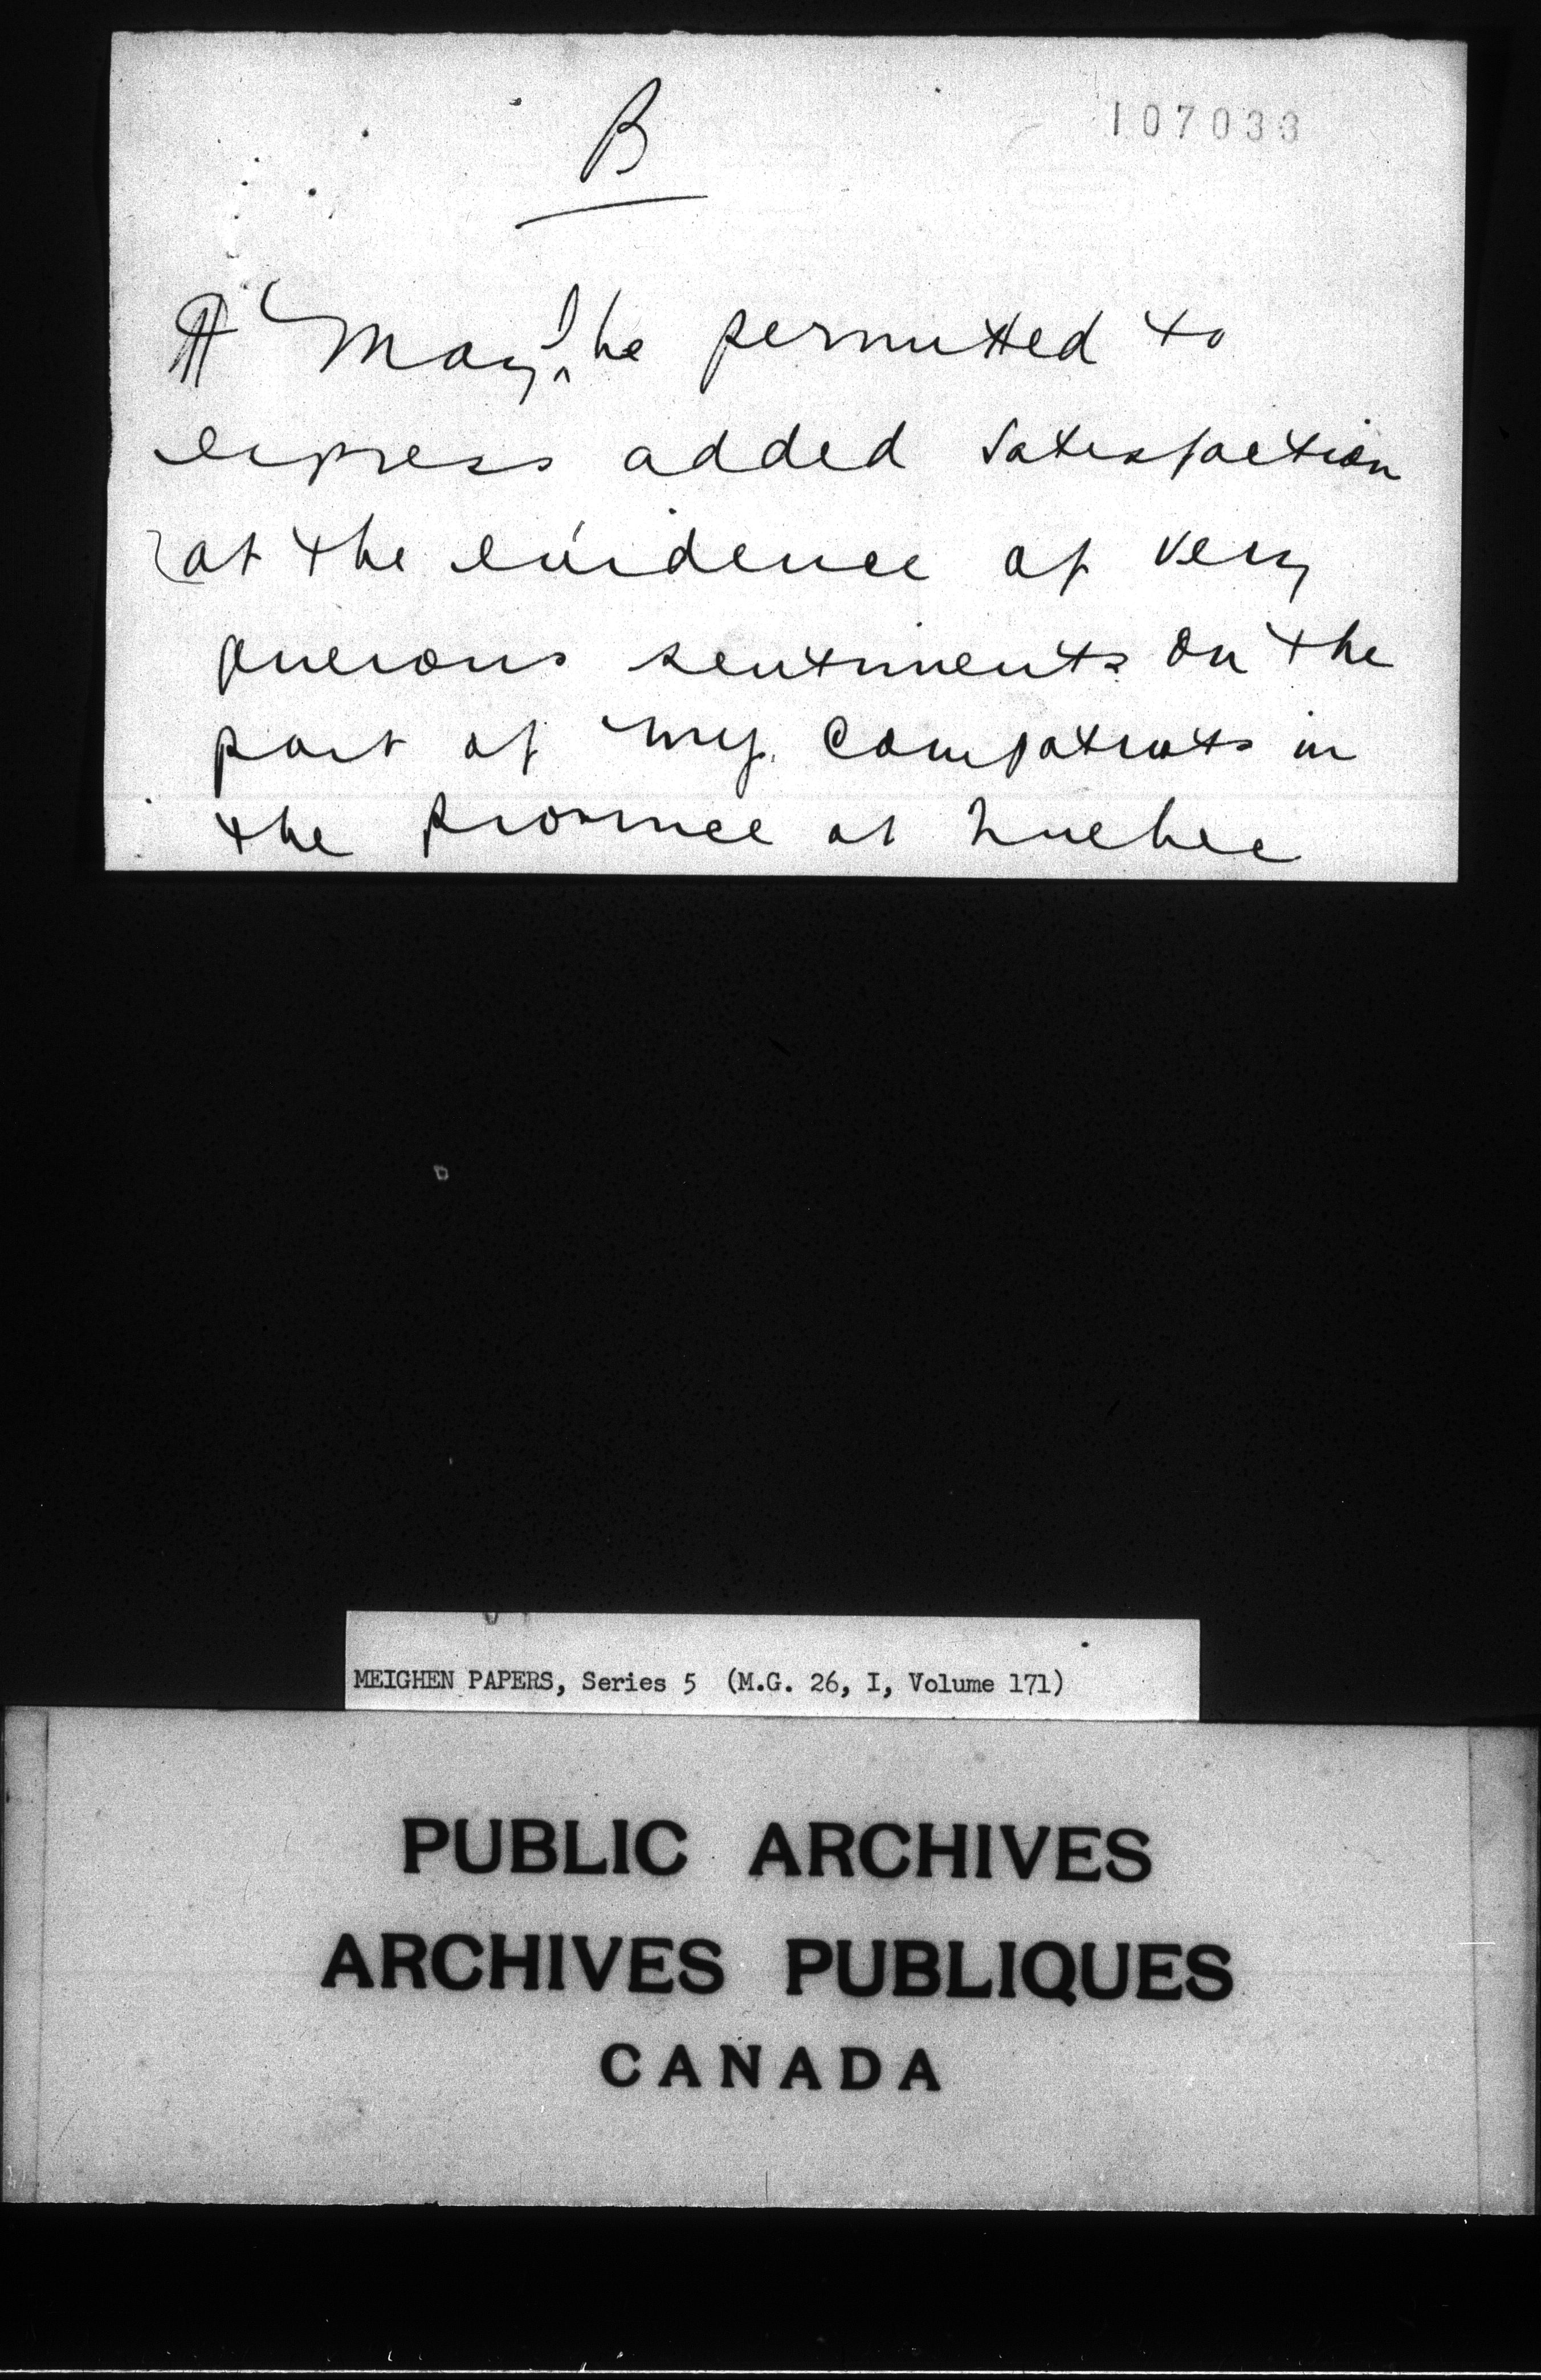 B
107033
¶ May I be permitted to
express added satisfaction
at the evidence of very
generous sentiments on the
part of my compatriots in
the province of Quebec
MEIGHEN PAPERS, Series 5 (M.G. 26, I, Volume 171)
PUBLIC ARCHIVES
ARCHIVES PUBLIQUES
CANADA